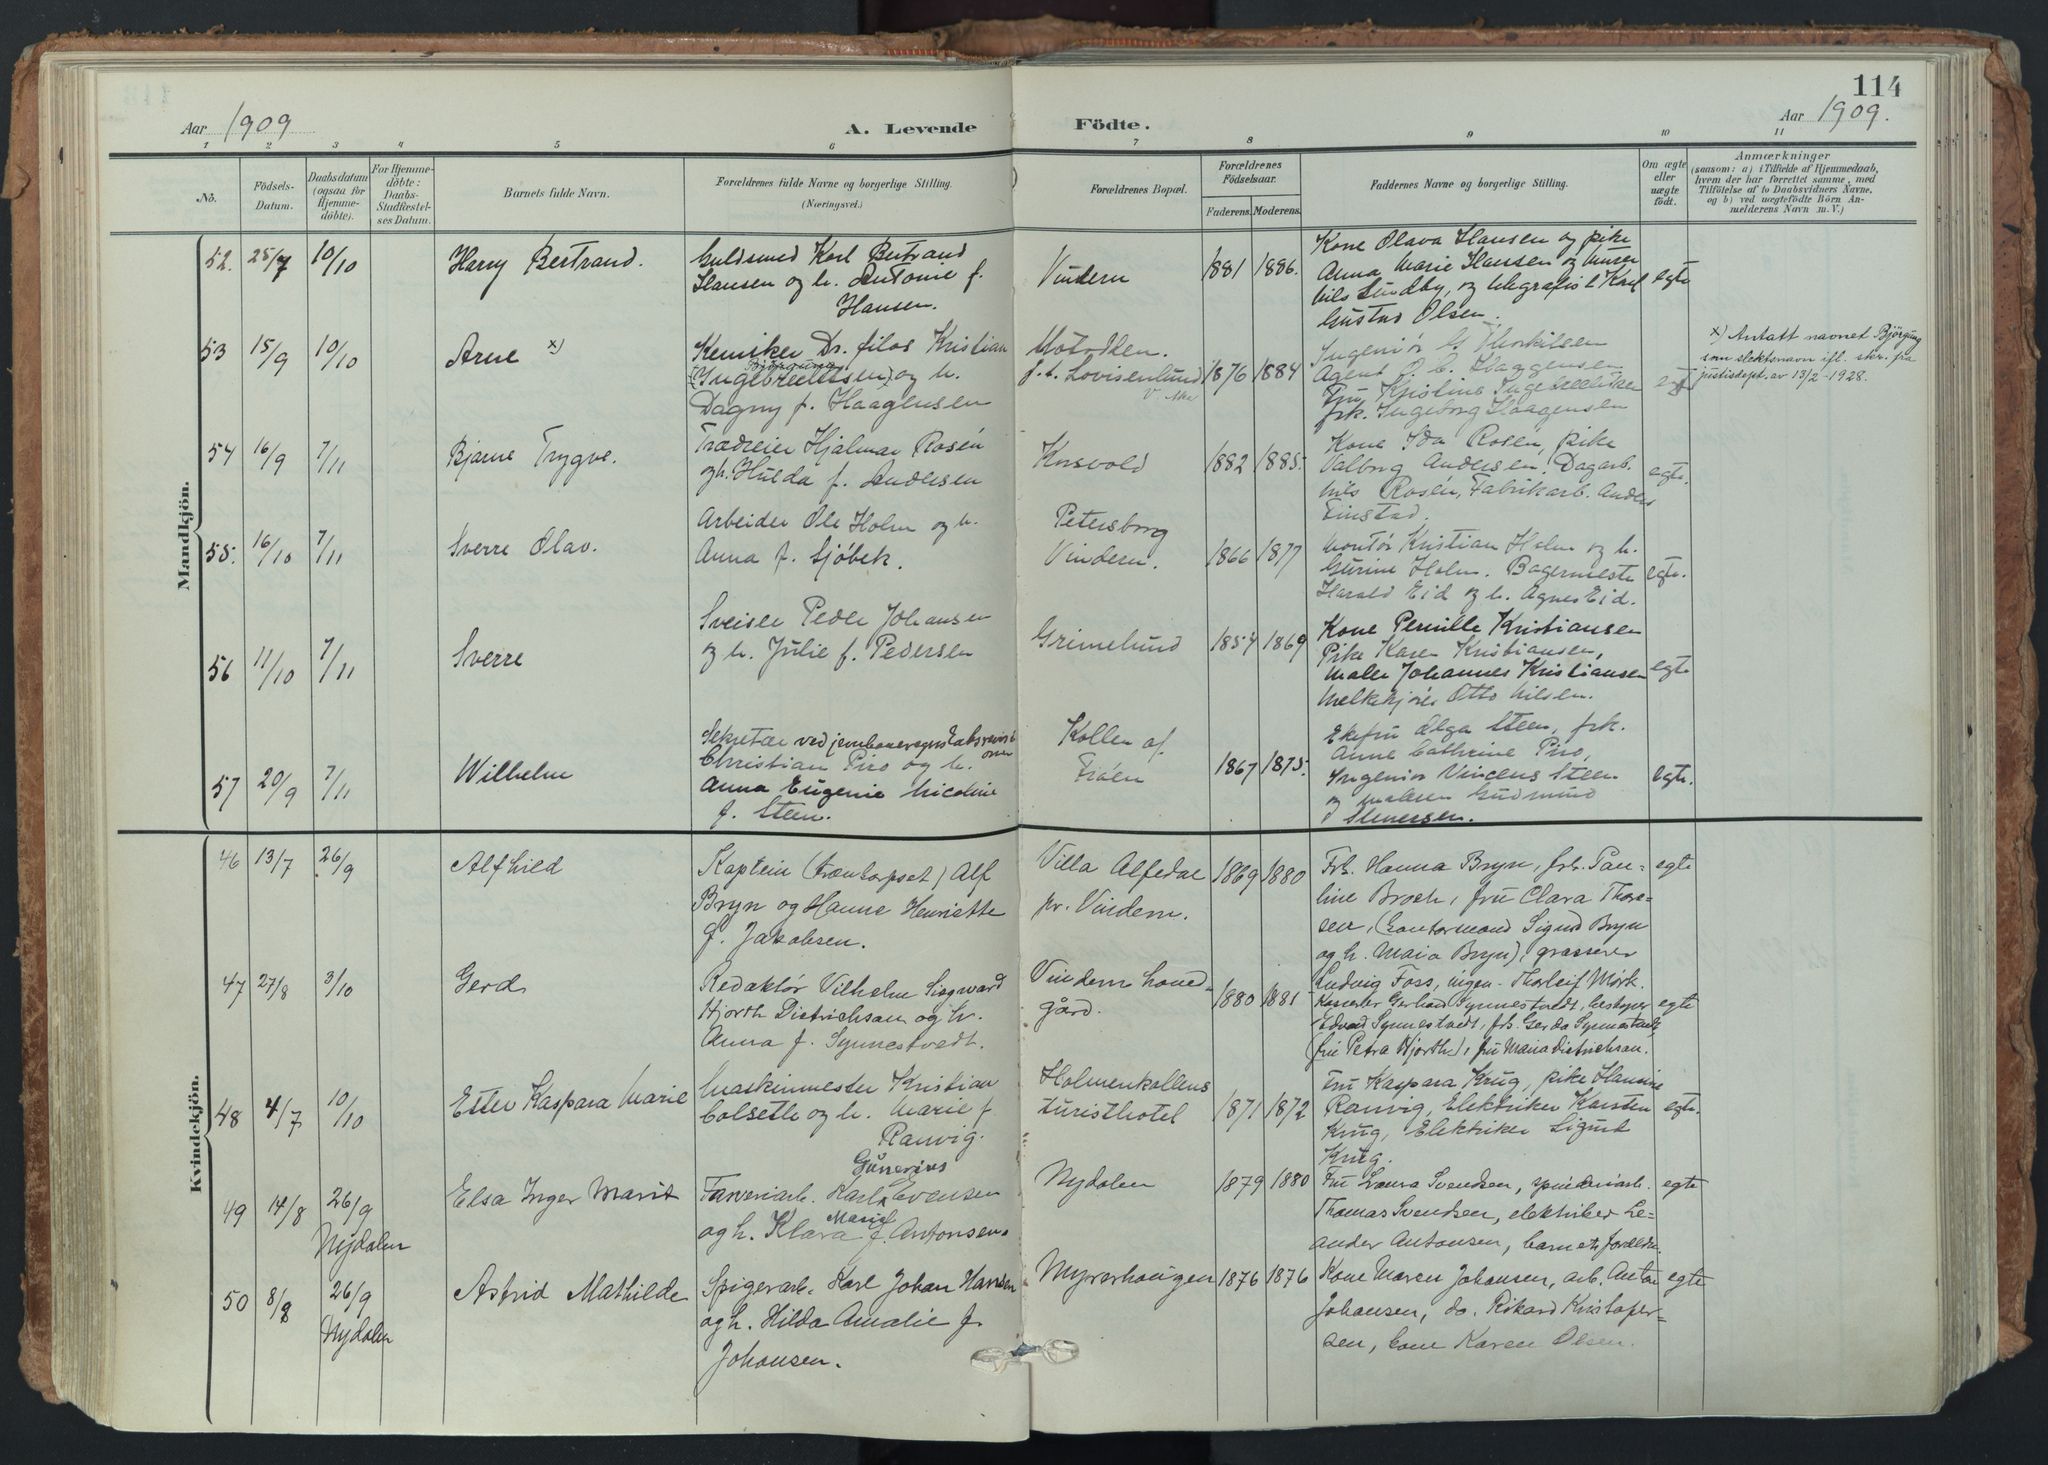 114
Aar 1909 A. Levende Födte. Aar 1909.
1 2 3 4 5 6 7 8 9 10 11
No.
Födsels-
Datum.
Daabsdatum
(ogsaa for
Hjemme-
döbte).
For Hjemme-
döbte:
Daabs-
Stadfæstel-
ses Datum.
Barnets fulde Navn.
Forældrenes fulde Navne og borgerlige Stilling.
(Næringsvei.)
Forældrenes Bopæl.
Forældrenes
Födselsaar.
Faderens. Moderens.
Faddernes Navne og borgerlige Stilling.
Om ægte
eller
uægte
födt.
Anmærkninger
(saasom: a) i Tilfælde af Hjemmedaab,
hvem der har forrettet samme, med
Tilföielse af to Daabsvidners Navne.
og b) ved uægtefödte Börn An-
melderens Navn m. V.)
Mandkjön.
52. 25/7 10/10 Harry Bertrand.
Guldsmed Karl Bertrand
Hansen og h. Antonie f.
Hansen.
Vindern 1881 1886.
Kone Olava Hansen og pike
Anna Marie Hansen og murer
Nils Lundby, og telegrafist Karl
Gustav Olsen.
egte
53 15/9 10/10 Arne x)
Kemiker Dr. filos Kristian
Björgung
(Ingebrechtsen) og h.
Dagny f. Haagensen
f. t. Lovisenlund
V. Aker
1876 1884
Ingeniör G Thorkilsen
Agent Haagensen
Fru Kristine Ingebrechtsen
frk. Ingeborg Haagensen
egt
x) Antatt navnet Björgung
som slektsnavn ifl. skr. fra
justisdept. av 13/2 - 1928.
54 16/9 7/11 Bjarne Trygve.
Trædreier Hjalmar Rosén
og h. Hulda f. Andersen
Korsvold 1882 1885.
Kone Ida Rosén, pike
Valborg Andersen. Dagarb.
Nils Rosén, Fabrikarb. Anders
Finstad.
egte.
55. 16/10 7/11 Sverre Olav.
Arbeider Ole Holm og h.
Anna f. Sjöbek.
Petersborg
Vindern.
1866 1877
Montör Kristian Holm og h.
Gurine Holm. Bagermester
Harald Eid og h. Agnes Eid.
egte.
56 11/10 7/11 Sverre
Sveiser Peder Johansen
og h. Julie f. Pedersen
Grimelund 1854 1869
Kone Pernille Kristiansen
Pike Karen Kristiansen,
Maler Johannes Kristiansen
Melkekjörer Otto Nilsen.
egte
57 20/9 7/11 Wilhelm
Sekretær ved jernbaneregnskabsrevisi
onen
Christian Piro og h.
Anna Eugenie Nicoline
f. Steen.
Kollen af
Fröen
1867 1875.
Ekefru Olga Steen, frk.
Anne Cathrine Piro,
Ingeniör Vincens Steen
og maleren Gudmund
Stenersen.
egte.
Kvindekjön.
46 13/7 26/9 Alfhild
Kaptein (træntorpset) Alf
Bryn og Hanne Henriette
f. Jakobsen.
Villa Alfedal
pr. Vindern.
1869 1880
Frk. Hanna Bryn, frk. Pau-
line Broch, fru Clara Thore-
sen, (Kontormand Sigurd Bryn
og h. Maia Bryn), grosserer
Ludvig Foss, ingen. Thorleif Mörk.
egte
47 27/8 3/10 Gerd
Redaktör Vilhelm Siegward
Hjorth Dietrichson og h.
Anna f. Synnestvedt.
Vindern hoved-
gård.
1880 1881
Kasserer Gerhard Synnestvedt, bestyrer
Edvard Synnestvedt, frk. Gerda Synnestvedt
(fru Petra Hjorth), fru Maria Dietrichson.
egte
48 4/7 10/10 Ester Kaspara Marie
Maskinmester Kristian
Colseth og h. Marie f.
Ranvig.
Holmenkollens
turisthotel
1871 1872
Fru Kaspara Krug, pike Hansine
Ranvig, Elektriker Karsten
Krug, Elektriker Sigurd
Krug.
egte.
49 14/8 26/9
Nydalen
Elsa Inger Marit
Gunerius
Farveriarb. Karl Evensen
Marie
og h. Klara f. Antonsen.
Nydalen 1879 1880
Fru Laura Svendsen, spinderiarb.
Thomas Svendsen, elektriker Le-
ander Antonsen, barnets forældre.
egte
50 8/8 26/9
Nydalen
Astrid Mathilde
Spigerarb. Karl Johan Hansen
og h. Hilda Amalie f.
Johansen.
Myrerhaugen 1876 1876
Kone Maren Johansen, arb. Anton
Johansen, do. Rikard Kristofer-
sen, kone Karen Olsen.
egte